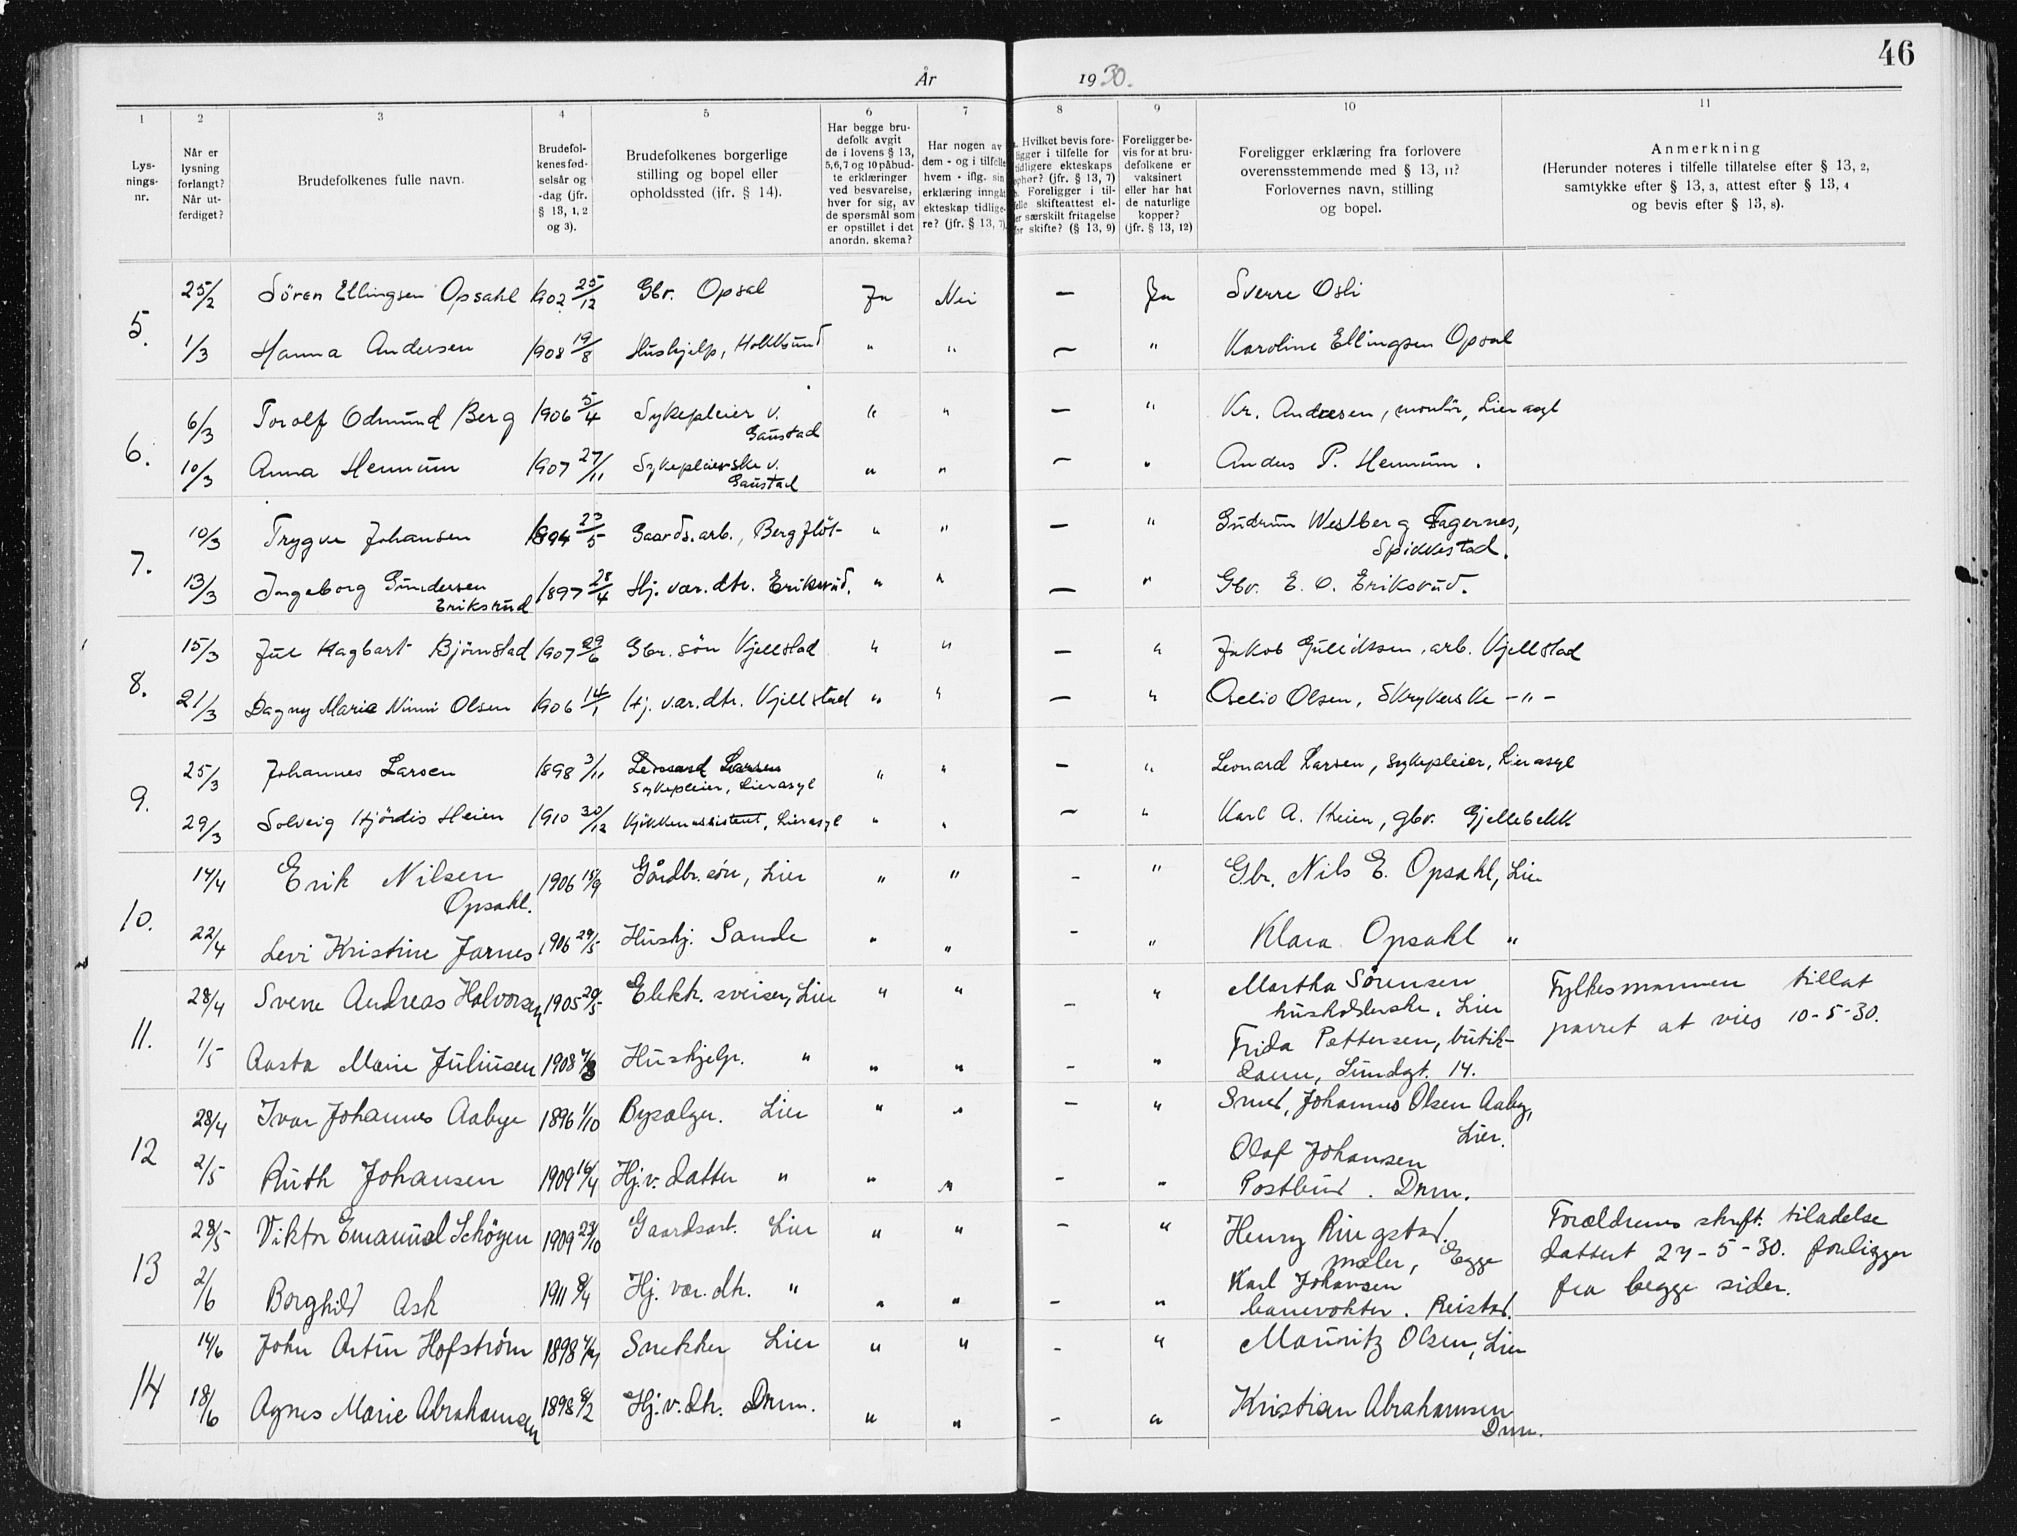 46
År 1930.
1 2 3 4 5 6 7 8 9 10 11
Lysnings-
nr.
Når er
lysning
forlangt?
Når ut-
ferdiget?
Brudefolkenes fulle navn.
Brudefol-
kenes fød-
selsår og
-dag (jfr.
§ 13, 1, 2
og 3).
Brudefolkenes borgerlige
stilling og bopel eller
opholdssted (ifr. § 14).
Har begge bru-
defolk avgit
de i lovens § 13,
5,6,7 og 10 påbud-
te erklæringer
ved besvarelse,
hver for sig, av
de spørsmål som
er opstillet i det
anordn. skema?
Har nogen av
dem - og i tilfelle
hvem - iflg. sin
erklæring inngåt
ekteskap tidlige-
re? (jfr. § 13, 7)
Hvilket bevis fore-
ligger i tilfelle for
tidligere ekteskaps
ophør? (jfr. § 13, 7)
Foreligger i til-
felle skifteattest el-
ler særskilt fritagelse
for skifte? (§ 13, 9)
Foreligger be-
vis for at bru-
defolkene er
vaksinert
eller har hat
de naturlige
kopper?
(jfr. § 13, 12)
Foreligger erklæring fra forlovere
overensstemmende med § 13, 11?
Forlovernes navn, stilling
og bopel.
Anmerkning
(Herunder noteres i tilfelle tillatelse efter § 13, 2,
samtykke efter § 13, 3, attest efter § 13, 4
og bevis efter § 13, 8).
5. 25/2 Sören Ellingsen Opsahl 1902 25/12 Gbr. Opsal Ja Nei — Ja Sverre Osli
1/3 Hanna Andersen 1908 19/8 Hushjelp, Hokksund " " — " Karoline Ellingsen Opsal
6. 6/3 Torolf Odmund Berg 1906 5/4 Sykepleier v. " " — " Kr. Andresen, montør, Lier asyl
Gaustad
10/3 Anna Hennum 1907 27/11 Sykepleierske v. " " — " Anders P. Hennum.
Gaustad
7. 10/3 Trygve Johansen 1894 23/5 Gaards.arb., Bergflöt- " " — " Gudrun Westberg Fagernes,
Spikkestad.
13/3 Ingeborg Gundersen 1897 28/4 Hj. vær. dtr. Eriksrud. " " — " Gbr. E. O. Eriksrud.
Eriksrud
8. 15/3 Jul Hagbart Björnstad 1907 29/6 Gbr. sön Kjellstad " " — " Jakob Gulliksen, arb. Kjellstad
21/3 Dagny Marie Ninni Olsen 1906 14/1 Hj. vær. dtr. Kjellstad " " — " Oselio Olsen, Strykerske -"-
9. 25/3 Johannes Larsen 1898 3/11 Leonard Larsen " " — " Leonard Larsen, sykepleier, Lier asyl
Sykepleier, Lierasyl
29/3 Solveig Hjördis Heien 1910 30/12 Kjökkenassistent, Lierasyl " " — " Karl A. Heien, gbr. Gjellebekk
10. 14/4 Erik Nilsen 1906 15/9 Gårdbr. søn, Lier " " - " Gbr. Nils E. Opsahl, Lier
Opsahl.
22/4 Levi Kristine Jarnes 1906 29/5 Hushj. Sande " " - " Klara Opsahl "
11. 28/4 Sverre Andreas Halvorsen 1905 20/5 Elektr. sveiser, Lier " " - " Martha Sörensen Fylkesmannen tillat
husholderske. Lier parret at vies 10-5-30.
1/5 Aasta Marie Juliusen 1908 Hushjelp. " " " - " Frida Pettersen, butik-
dame, Lundgt. 14.
12 28/4 Ivar Johannes Aabye 1896 1/10 Bysælger. Lier " " - " Smed, Johannes Olsen Aaby,
Lier.
2/5 Ruth Johansen 1909 16/4 Hj.v. datter " " " - " Olaf Johansen
Postbud. Drm.
13 28/5 Viktor Emanuel Schöyen 1909 23/10 Gaardsarb. Lier " " - " Henry Ringstad. Forældrenes skrft. tiladelse
maler, Egge dattert 27-5-30. foreligger
2/6 Borghild Ask 1911 9/4 Hj. vær. dtr. " " " - " Karl Johansen fra begge sider.
banevokter. Reistad.
14 14/6 John Artur Hofstrøm 1898 Snekker Lier " " - " Mauritz Olsen, Lier
18/6 Agnes Marie Abrahamsen 1898 6/2 Hj.v. dtr. Drm. " " - " Kristian Abrahamsen
Drm.